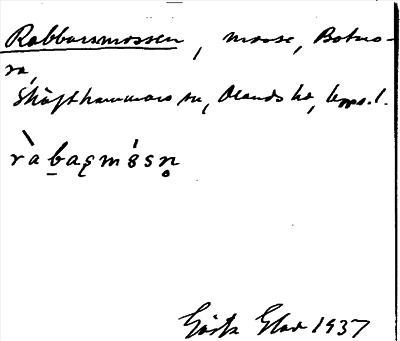 Rabbarsmossen, mosse, Botars-
ra,
Skäfthammars sn, Olands hd, Upps. l.
ràbaςmósn̥
Gösta Elov 1937